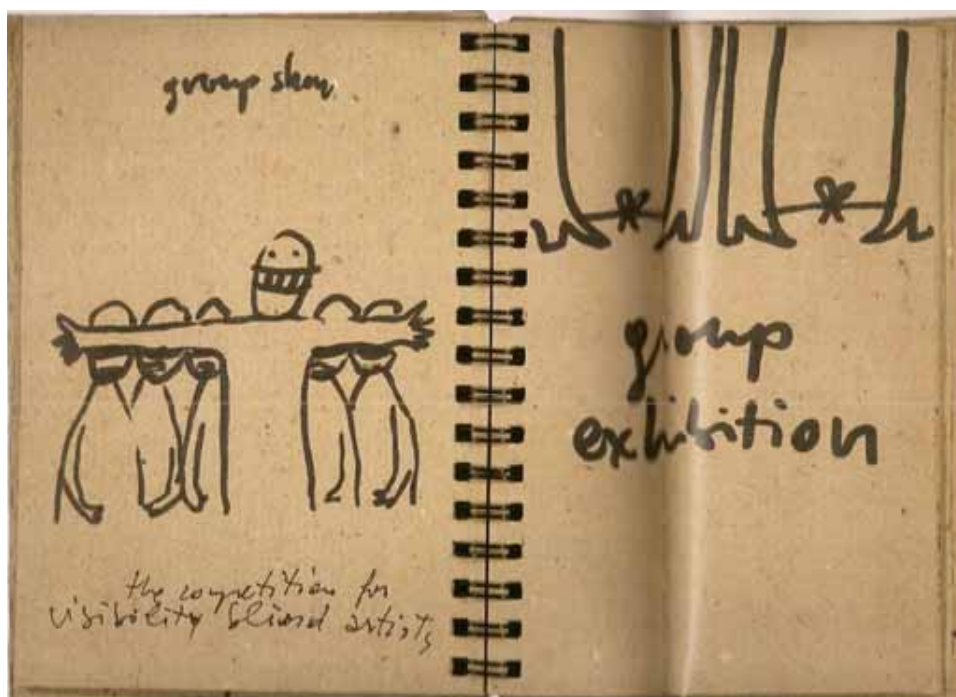 group show
the competition for
visibility blind artists
group
exhibition